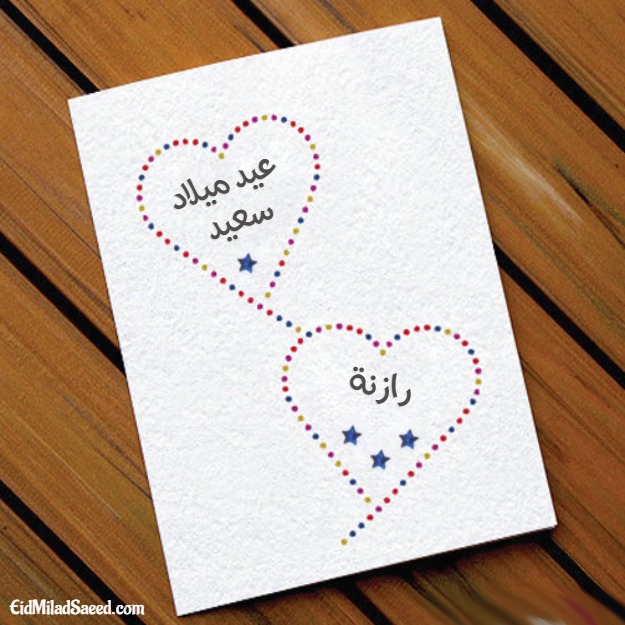 عيد ميلاد
سعيد
رازنة
EidMiladSaeed.com